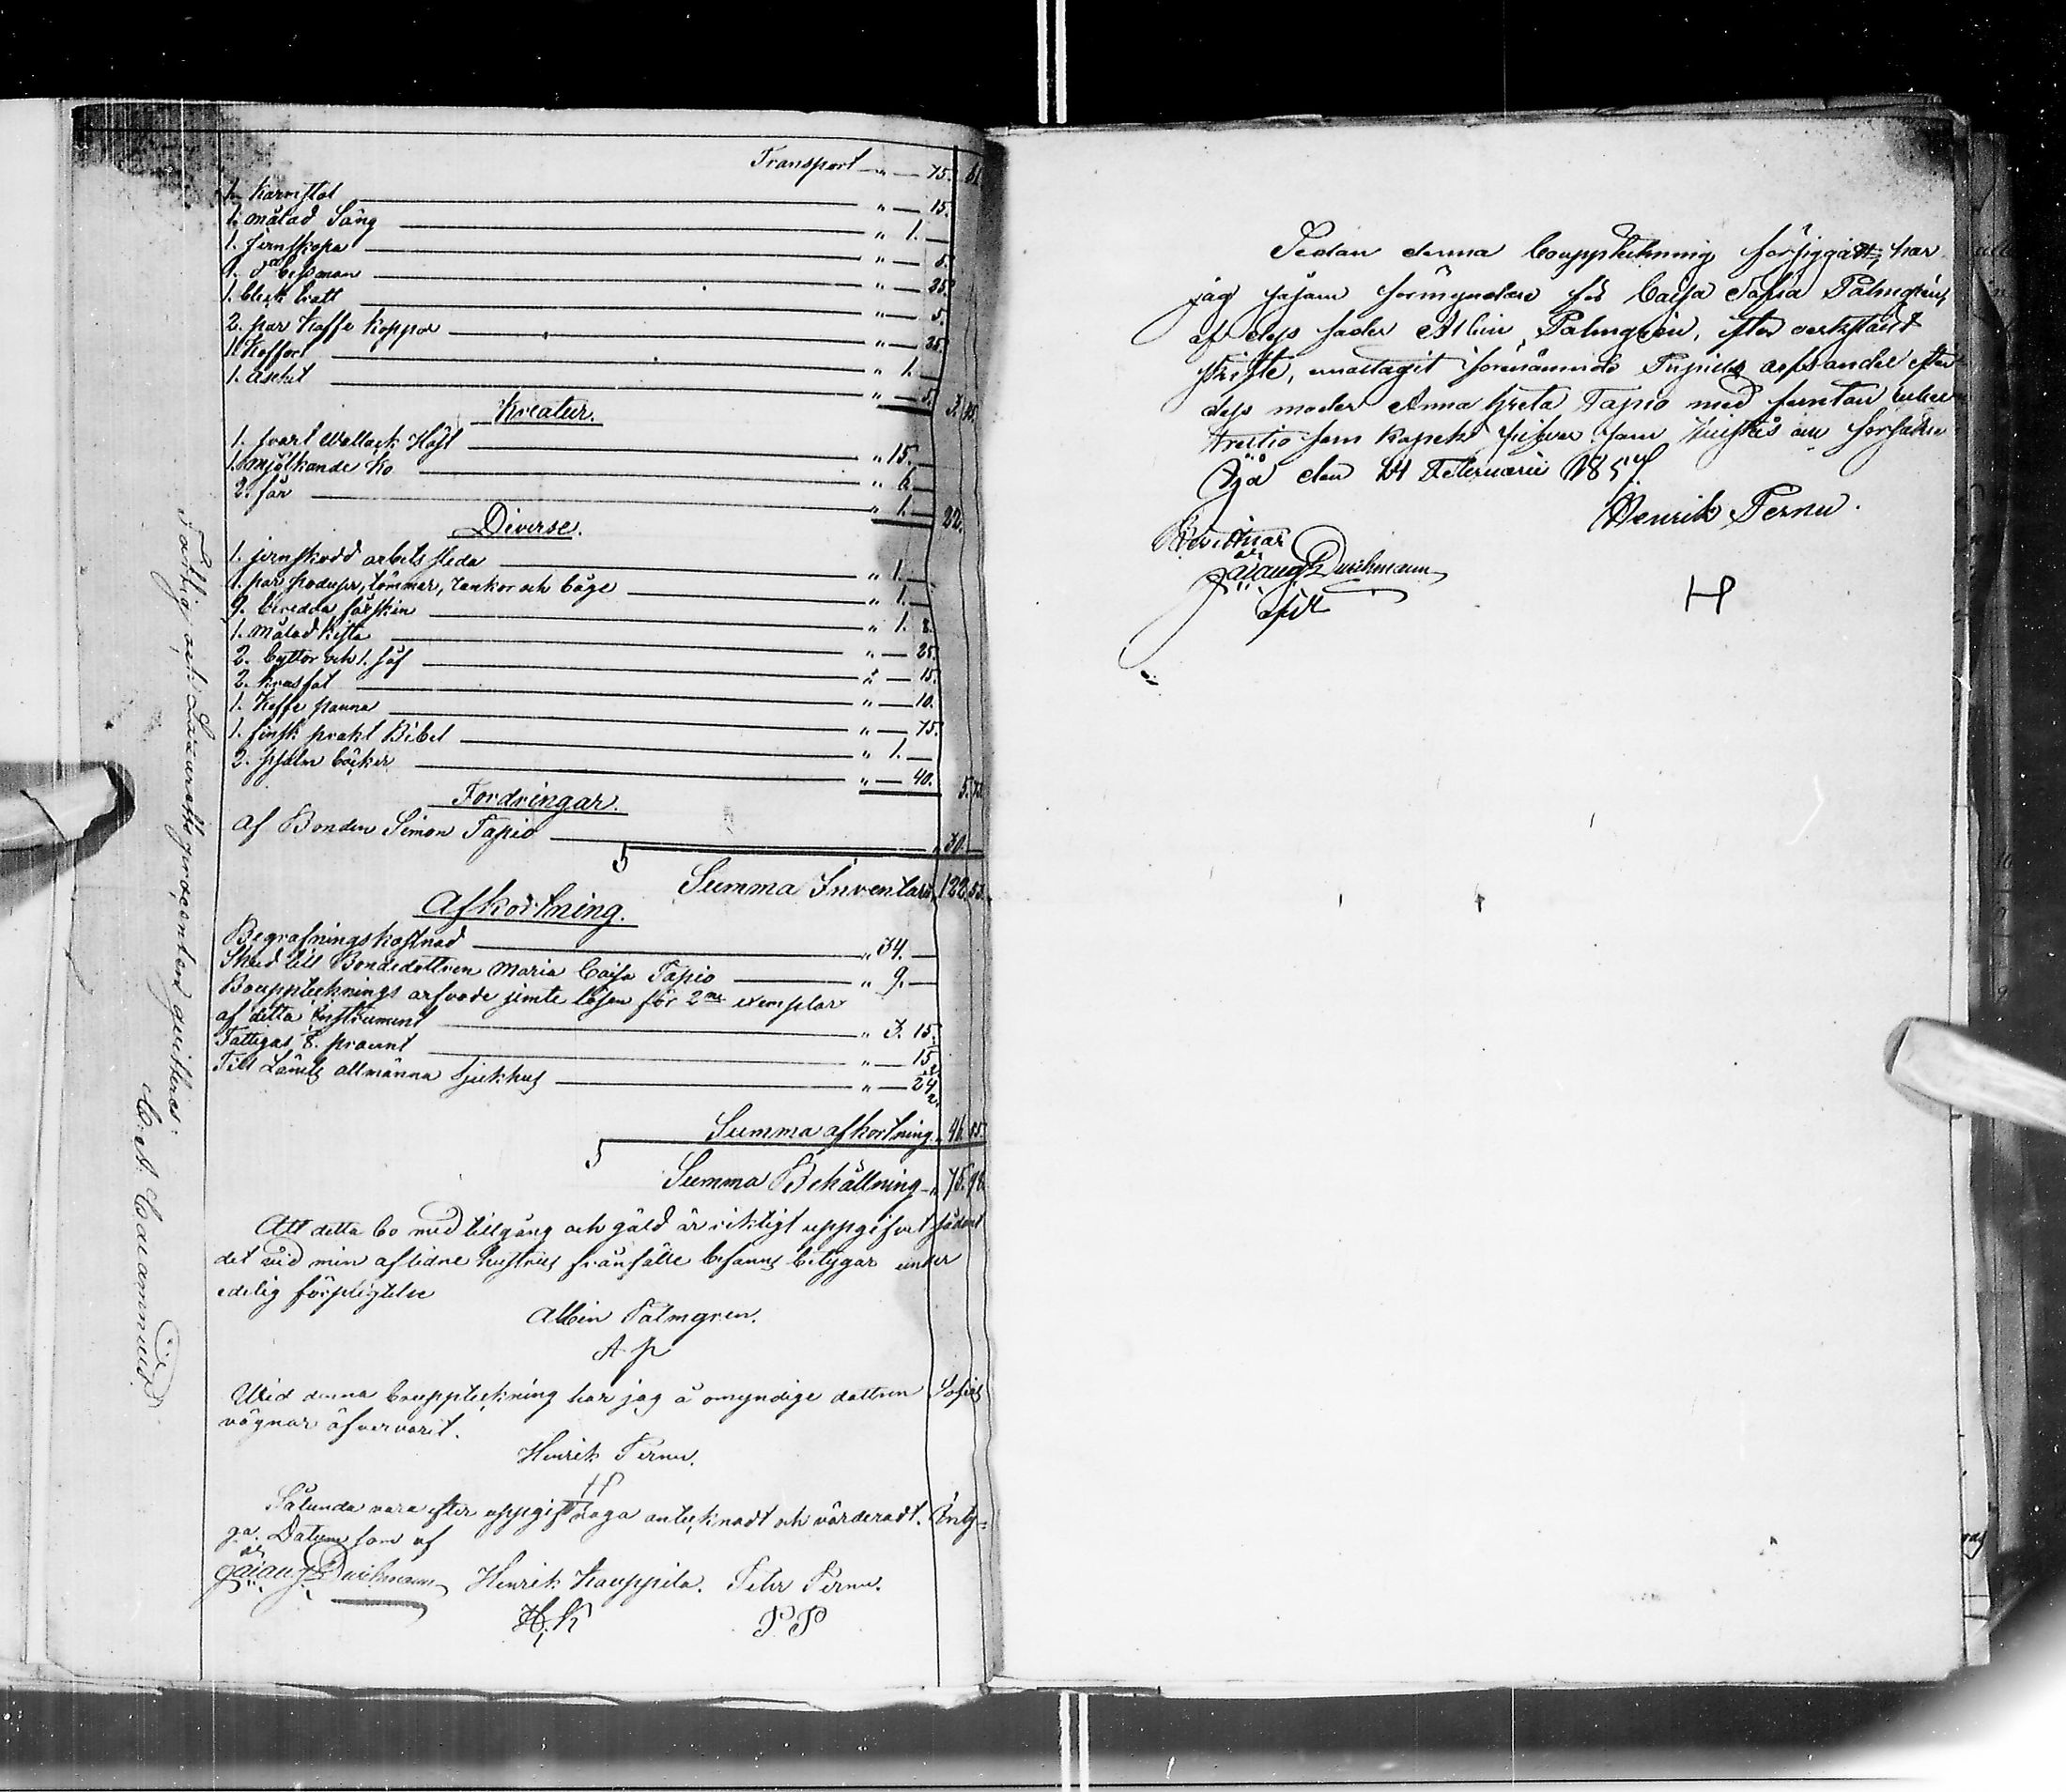 Transport — " — 75. 61
1. Karmstol — " — 15.
1. målad Säng — " 1. —
1. jernskopa — " — 5.
1. d:o bessman — " — 25.
1. bleck tratt — " — 5.
2. par Kaffe koppor — " — 25.
1. Koffort — " 1. —
1. asckit — " — 5. 3.
Kreatur.
1. svart Wallack Häst — " 15. —
1. mjölkande ko — " 6. —
2. får — " 1. — 22. —
Diverse.
1. jernskodd arbets släda — " 1. —
1. par tömmar, rankor och båge — " 1. —
9. beredda fårskin — " 1. 8.
1. målad kista — " — 25.
2. byttor och 1. såf — " — 15.
2. krusfat — " — 10.
1. Kaffe panna — " — 75.
1. finsk prakt Bibel — " 1. —
2. psalm böcker — " — 40. 5. 73.
Fordringar.
Af Bonden Simon Tapio — " 30. —
Summa Inventarii 122. 53.
Afkortning.
Begrafningskostnad — " 34. —
Skuld till Bondedottren Maria Caisa Tapio — " 9. —
Bouppteknings arfvode jemte lösen för 2ne exemplar
af detta instrument — " 3. 15.
Fattigas 8. procent — " — 15
Till Länets allmänna Sjukhus — " — 24
Summa afkortning " 46. 55.
Summa Behållning " 75. 98.
Att detta bo med tillgång och gäld är riktigt uppgifvet sådant
det vid min aflidne hustrus frånfälle befanns betygar under
edelig förpligtelse
Albin Palmgren.
A P
Wid denna bouppteckning har jag å omyndige dottren Sofias
vägnar öfvervarit.
Henrik Pernu.
H
Sålunda vara efter uppgift noga antecknadt och värderadt. Inty-
ga. Datum som of
Duchmann Henrik Kauppila. Petter Pernu.
H. K P. P
Fattig och Lazarettsprocenten quitteras:
C. A. Calamnius
Sedan denna bouppteckning försiggått, har
jag såsom förmyndare för Caisa Sofia Palmgren,
af dess fader Albin Palmgrén, efter verkstäldt
skifte, emottagit förenämnde Pupills arfsandel efter
dess moder Anna Greta Tapio med femton rubel
trettio fem kopek silfver som quitteras
den 14 Februarii 1857.
Henrik Pernu.
Bevittnar
Duchmann
H